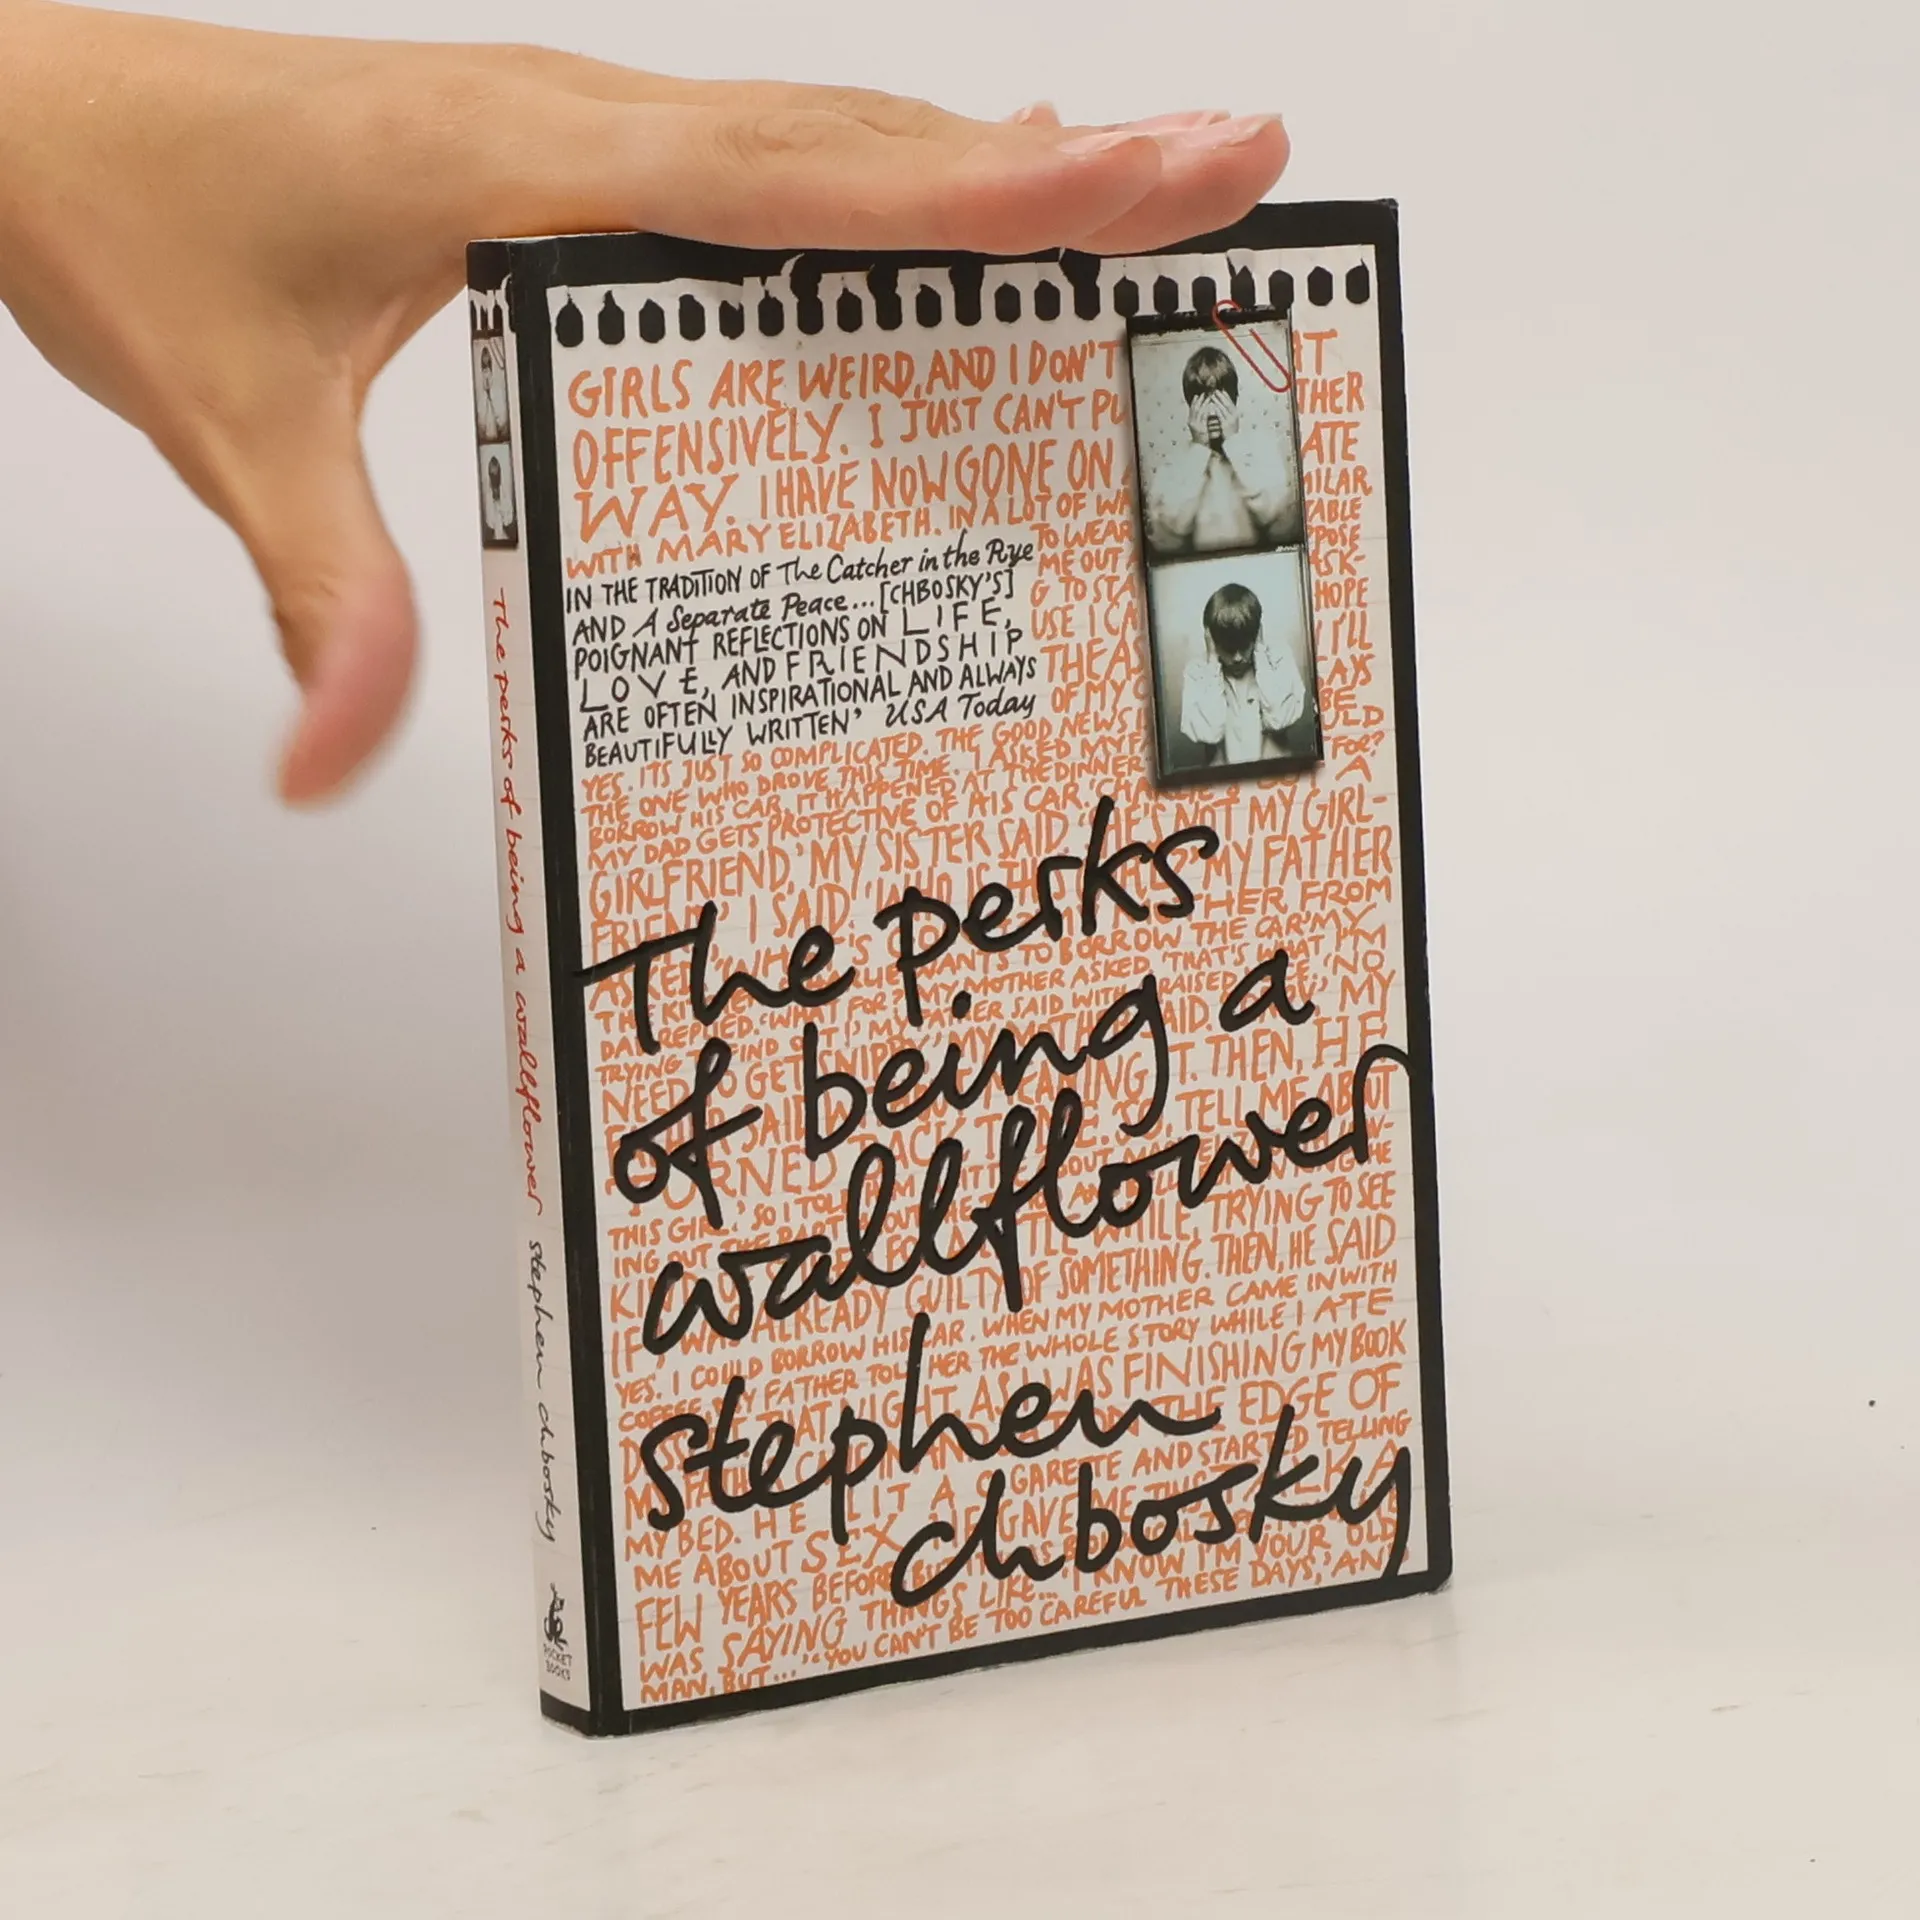 GIRLS ARE WEIRD, AND I DON'T
OFFENSIVELY. I JUST CAN'T
THER
WAY. I HAVE NOW GONE ON
WITH MARY ELIZABETH. IN A LOT OF
TO WEAR
IN THE TRADITION OF The Catcher in the Rye
ME OUT
AND A Separate Peace... [CHBOSKY'S]
POIGNANT REFLECTIONS ON LIFE,
USE I
HOPE
LOVE, AND FRIENDSHIP
I'LL
ARE OFTEN INSPIRATIONAL AND ALWAYS
OF MY
BE
BEAUTIFULLY WRITTEN' USA Today
YES. IT'S JUST SO COMPLICATED. THE GOOD NEWS
FOR?
THE ONE WHO DROVE THIS TIME. I ASKED MY
BORROW HIS CAR. IT HAPPENED AT THE DINNER
A
MY DAD GETS PROTECTIVE OF HIS CAR.
GIRLFRIEND,' MY SISTER SAID. 'SHE'S NOT MY GIRL-
I SAID. MY FATHER
ASKED. HER FROM
WANTS TO BORROW THE CAR.' MY
'WHAT FOR?' MY MOTHER ASKED. 'THAT'S WHAT I'M
TRYING FIND OUT,' MY FATHER SAID WITH RAISED 'NO
NEED GET SNIPPY,' MY MY
SAID THEN, HE
TELL ME ABOUT
THIS GIRL.' SO I TOLD HIM
ING OUT THE PART TRYING TO SEE
GUILTY OF SOMETHING. THEN, HE SAID
YES. I COULD BORROW HIS CAR. WHEN MY MOTHER CAME IN WITH
COFFEE, MY FATHER TOLD HER THE WHOLE STORY WHILE I ATE
THAT NIGHT, AS I WAS FINISHING MY BOOK
THE EDGE OF
MY BED. HE LIT A CIGARETTE AND STARTED TELLING
ME ABOUT SEX. HE GAVE ME THIS TALK A
FEW YEARS BEFORE, BUT
WAS SAYING THINGS LIKE... 'I KNOW I'M YOUR OLD
MAN, BUT...' 'YOU CAN'T BE TOO CAREFUL THESE DAYS,' AND
The perks
of being a
wallflower
stephen
chbosky
The perks of being a wallflower stephen chbosky
POCKET
BOOKS